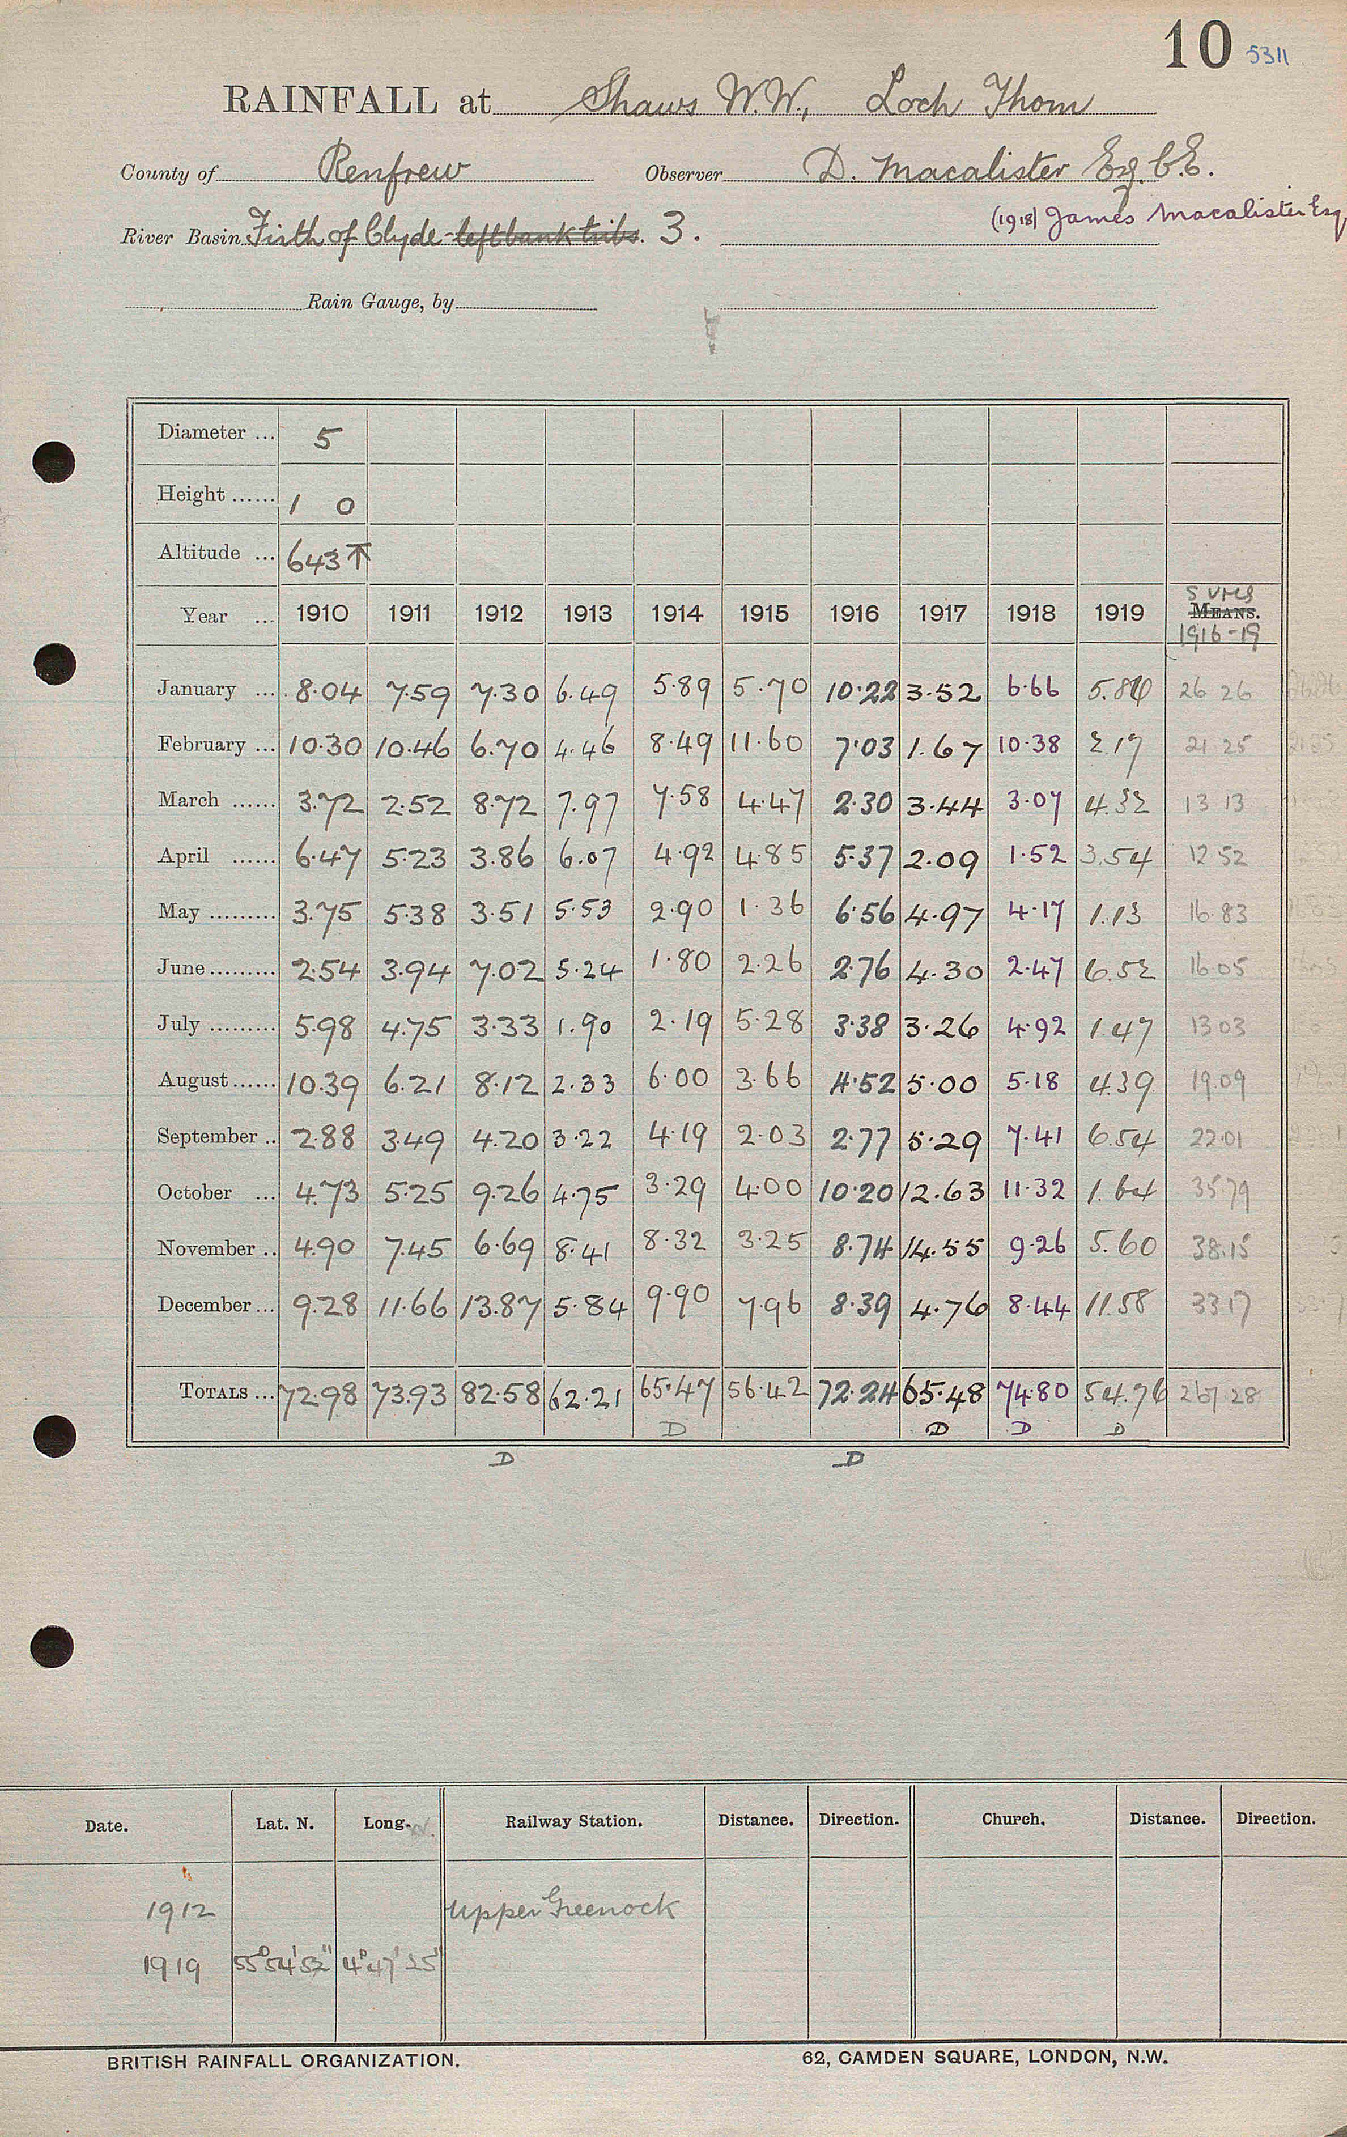 10 5311
RAINFALL at Shaws W.W., Loch Thom
County of Renfrew Observer D. Macalister Esq. C.E.
(1918) James Macalister Esq.
River Basin Firth of Clyde - left bank tribs. 3.
Rain Gauge, by
Diameter ... 5
Height ...... 1 0
Altitude ... 643 T
SUMS
Year ... 1910 1911 1912 1913 1914 1915 1916 1917 1918 1919 MEANS.
1916-19
January ... 8.04 7.59 7.30 6.49 5.89 5.70 10.22 3.52 6.66 5.86 26 26
February ... 10.30 10.46 6.70 4.46 8.49 11.60 7.03 1.67 10.38 2 17 21.25
March ...... 3.72 2.52 8.72 7.97 7.58 4.47 2.30 3.44 3.07 4.32 13 13
April ...... 6.47 5.23 3.86 6.07 4.92 4.85 5.37 2.09 1.52 3.54 12 52
May ......... 3.75 5.38 3.51 5.53 2.90 1.36 6.56 4.97 4.17 1.13 16.83
June ......... 2.54 3.94 7.02 5.24 1.80 2.26 2.76 4.30 2.47 6.52 16.05
July ......... 5.98 4.75 3.33 1.90 2.19 5.28 3.38 3.26 4.92 1.47 13 03
August ...... 10.39 6.21 8.12 2.33 6.00 3.66 4.52 5.00 5.18 4.39 19.09
September .. 2.88 3.49 4.20 3.22 4.19 2.03 2.77 5.29 7.41 6.54 22.01
October ... 4.73 5.25 9.26 4.75 3.29 4.00 10.20 12.63 11.32 1.64 35.79
November .. 4.90 7.45 6.69 8.41 8.32 3.25 8.74 14.55 9.26 5.60 38.15
December ... 9.28 11.66 13.87 5.84 9.90 7.96 8.39 4.76 8.44 11.58 33.17
TOTALS ... 72.98 73.93 82.58 62.21 65.47 56.42 72.24 65.48 74.80 54.76 267 28
D D D D
D D
Date. Lat. N. Long. W. Railway Station. Distance. Direction. Church. Distance. Direction.
1912 Upper Greenock
1919 55° 54' 52" 4° 47' 25"
BRITISH RAINFALL ORGANIZATION. 62, CAMDEN SQUARE, LONDON, N.W.